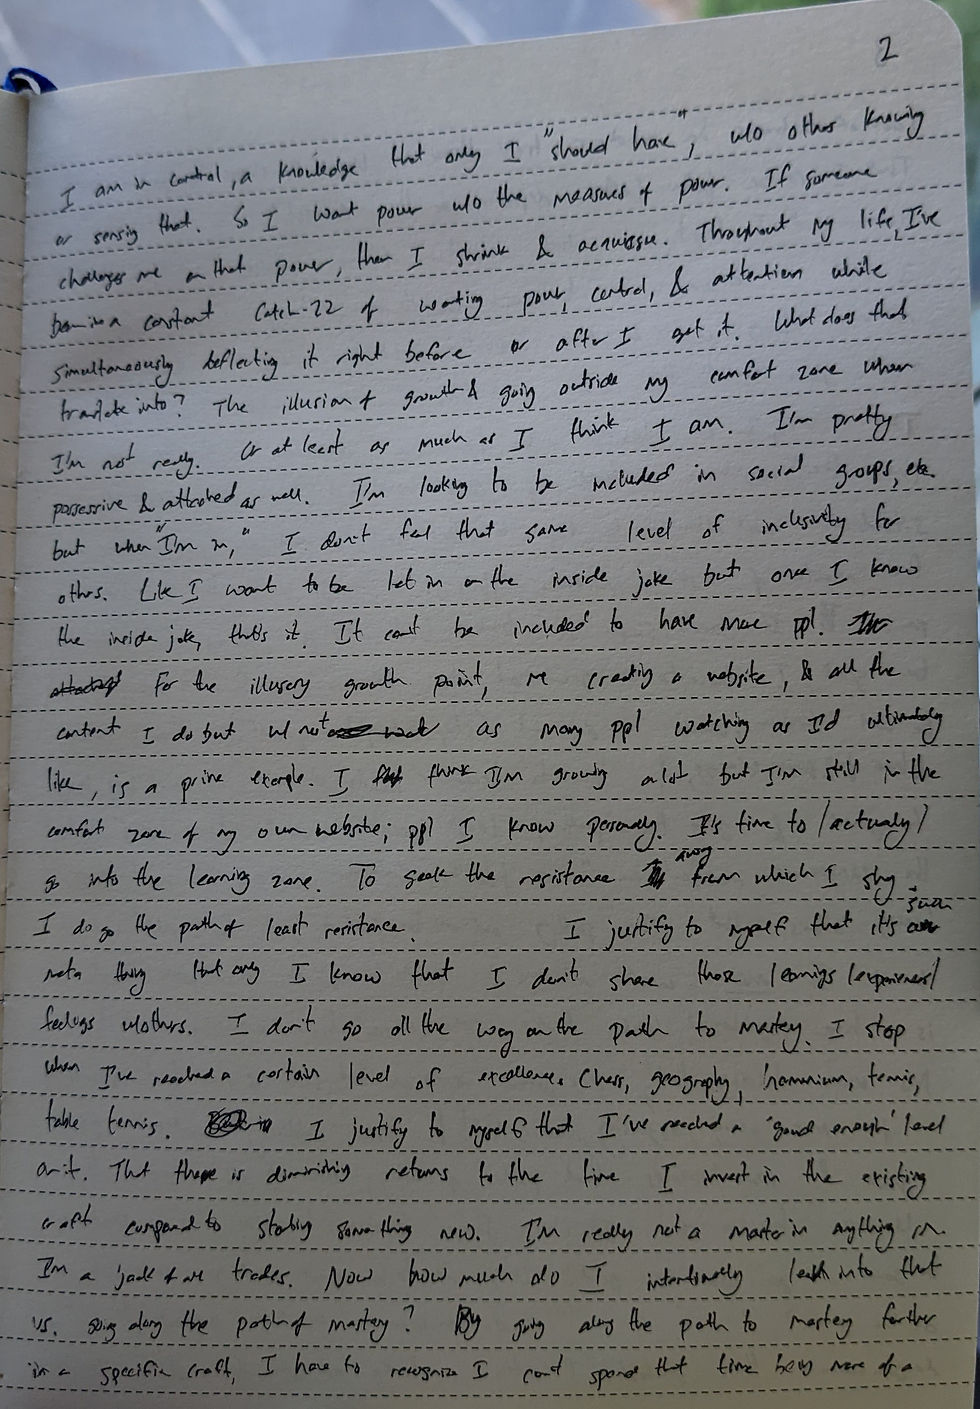 2
I am in control, a knowledge that only I "should have", w/o others knowing
or sensing that. So I want power w/o the measures of power. If someone
challenges me on that power, then I shrink & acquiesce. Throughout my life, I've
been in a constant Catch-22 of wanting power, control, & attention while
simultaneously deflecting it right before or after I get it. What does that
translate into? The illusion of growth & going outside my comfort zone when
I'm not really. Or at least as much as I think I am. I'm pretty
possessive & attached as well. I'm looking to be included in social groups, etc.
but when "I'm in," I don't feel that same level of inclusivity for
others. Like I want to be let in on the inside joke but once I know
the inside joke, that's it. It can't be included to have more ppl.
For the illusory growth point, me creating a website, & all the
content I do but w/ not as many ppl watching as I'd ultimately
like, is a prime example. I think I'm growing a lot but I'm still in the
comfort zone of my own website; ppl I know personally. It's time to /actually/
go into the learning zone. To seek the resistance away from which I shy.
I do go the path of least resistance. I justify to myself that it's some
meta thing that only I know that I don't share those learnings/experiences/
feelings w/others. I don't go all the way on the path to mastery. I stop
when I've reached a certain level of excellence. Chess, geography, harmonium, tennis,
table tennis. I justify to myself that I've reached a 'good enough' level
on it. That there is diminishing returns to the time I invest in the existing
craft compared to starting something new. I'm really not a master in anything
I'm a 'jack of all trades. Now how much do I intentionally lean into that
vs. going along the path of mastery? By going along the path to mastery further
in a specific craft, I have to recognize I can't spend that time being more of a